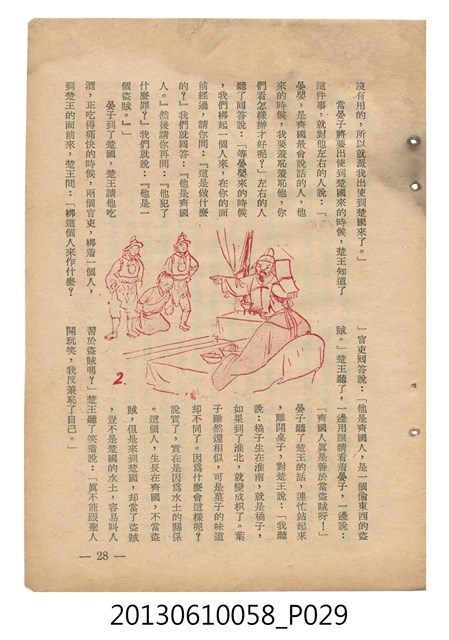 沒有用的，所以就派我出使到楚國來了。」
當晏子將要出使到楚國來的時候，楚王知道了
這件事，就對他左右的人說：「
晏嬰，是齊國最會說話的人，他
來的時候，我要羞恥羞恥他，你
們看怎樣辦才好呢？」左右的人
聽了回答說：「等晏嬰來的時候
，我們綁起一個人來，在你的面
前經過，請你問：『這是做什麼
的？』我們就回答：『他是齊國
人。』然後請你再問：『他犯了
什麼罪？』我們就說：『他是一
個盜賊。』」
晏子到了楚國，楚王請他吃
酒，正吃得痛快的時候，兩個官吏，綁着一個人，
到楚王的面前來，楚王問：「綁這個人來作什麼？
」官吏回答說：「他是齊國人，是一個偷東西的盜
賊。」楚王聽了，一邊用眼睛看着晏子，一邊說：
「齊國人眞是善於當盜賊呀！」
晏子聽了楚王的話，連忙站起來
，離開桌子，對楚王說：「我聽
說：橘子生在淮南，就是橘子，
如果到了淮北，就變成枳了。葉
子雖然還相似，可是菓子的味道
却不同了。因爲什麼會這樣呢？
說實了，實在是因爲水土的關係
。這個人，生長在齊國，不當盜
賊，但是來到楚國，却當了盜賊
，豈不是楚國的水土，容易叫人
習於盜賊嗎？」楚王聽了笑着說：「眞不能跟聖人
開玩笑，我反羞恥了自己。」
2.
— 28 —
20130610058_P029